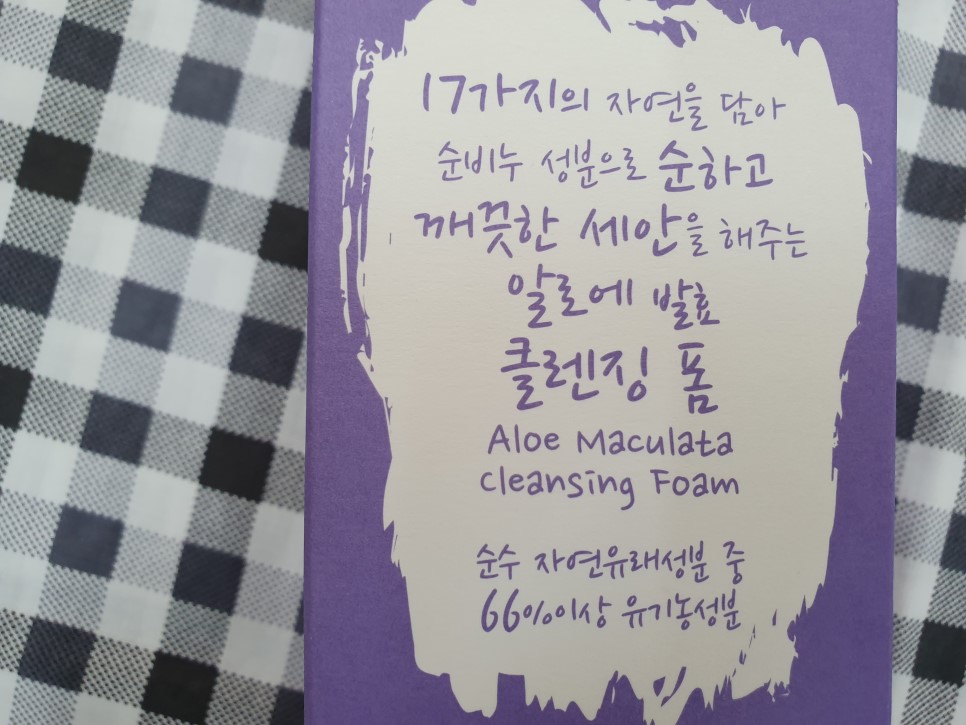 17가지의 자연을 담아
순비누 성분으로 순하고
깨끗한 세안을 해주는
알로에 발효
클렌징 폼
Aloe Maculata
cleansing Foam
순수 자연유래성분 중
66%이상 유기농성분